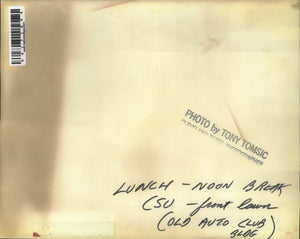 PHOTO by TONY TOMSIC
CLEVELAND PRESS PHOTOGRAPHER
LUNCH - NOON BREAK
CSU - front lawn
(OLD AUTO CLUB)
BLDG